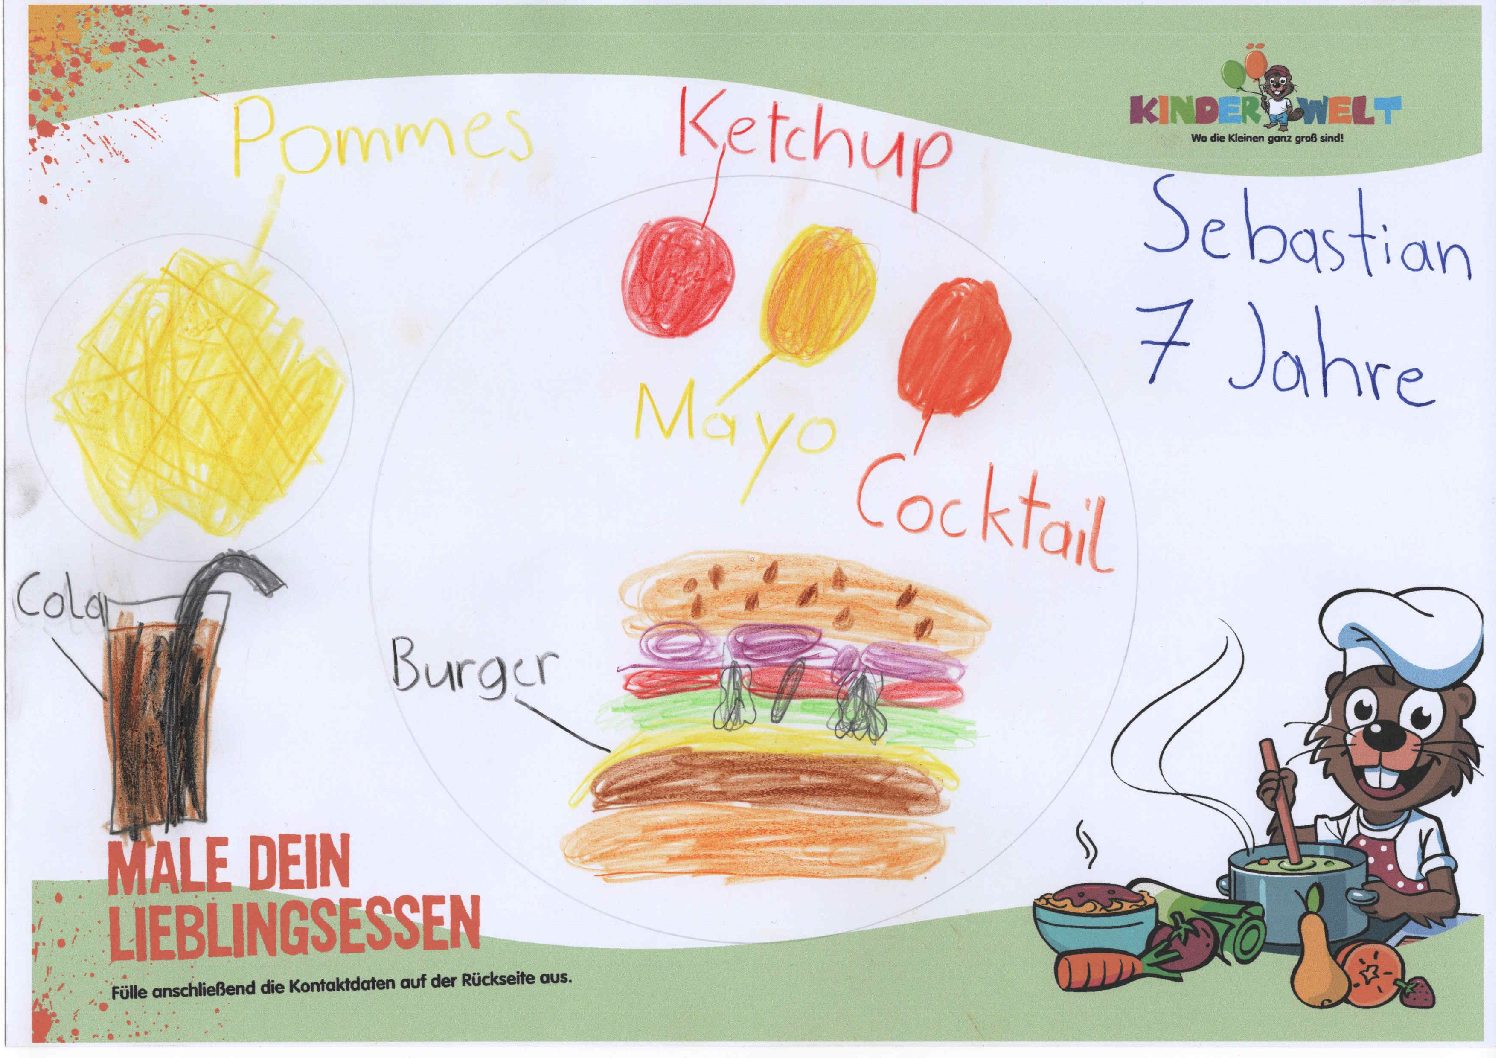 KINDERWELT
Wo die Kleinen ganz groß sind!
Pommes
Ketchup
Sebastian
7 Jahre
Mayo
Cocktail
Cola
Burger
MALE DEIN
LIEBLINGSESSEN
Fülle anschließend die Kontaktdaten auf der Rückseite aus.